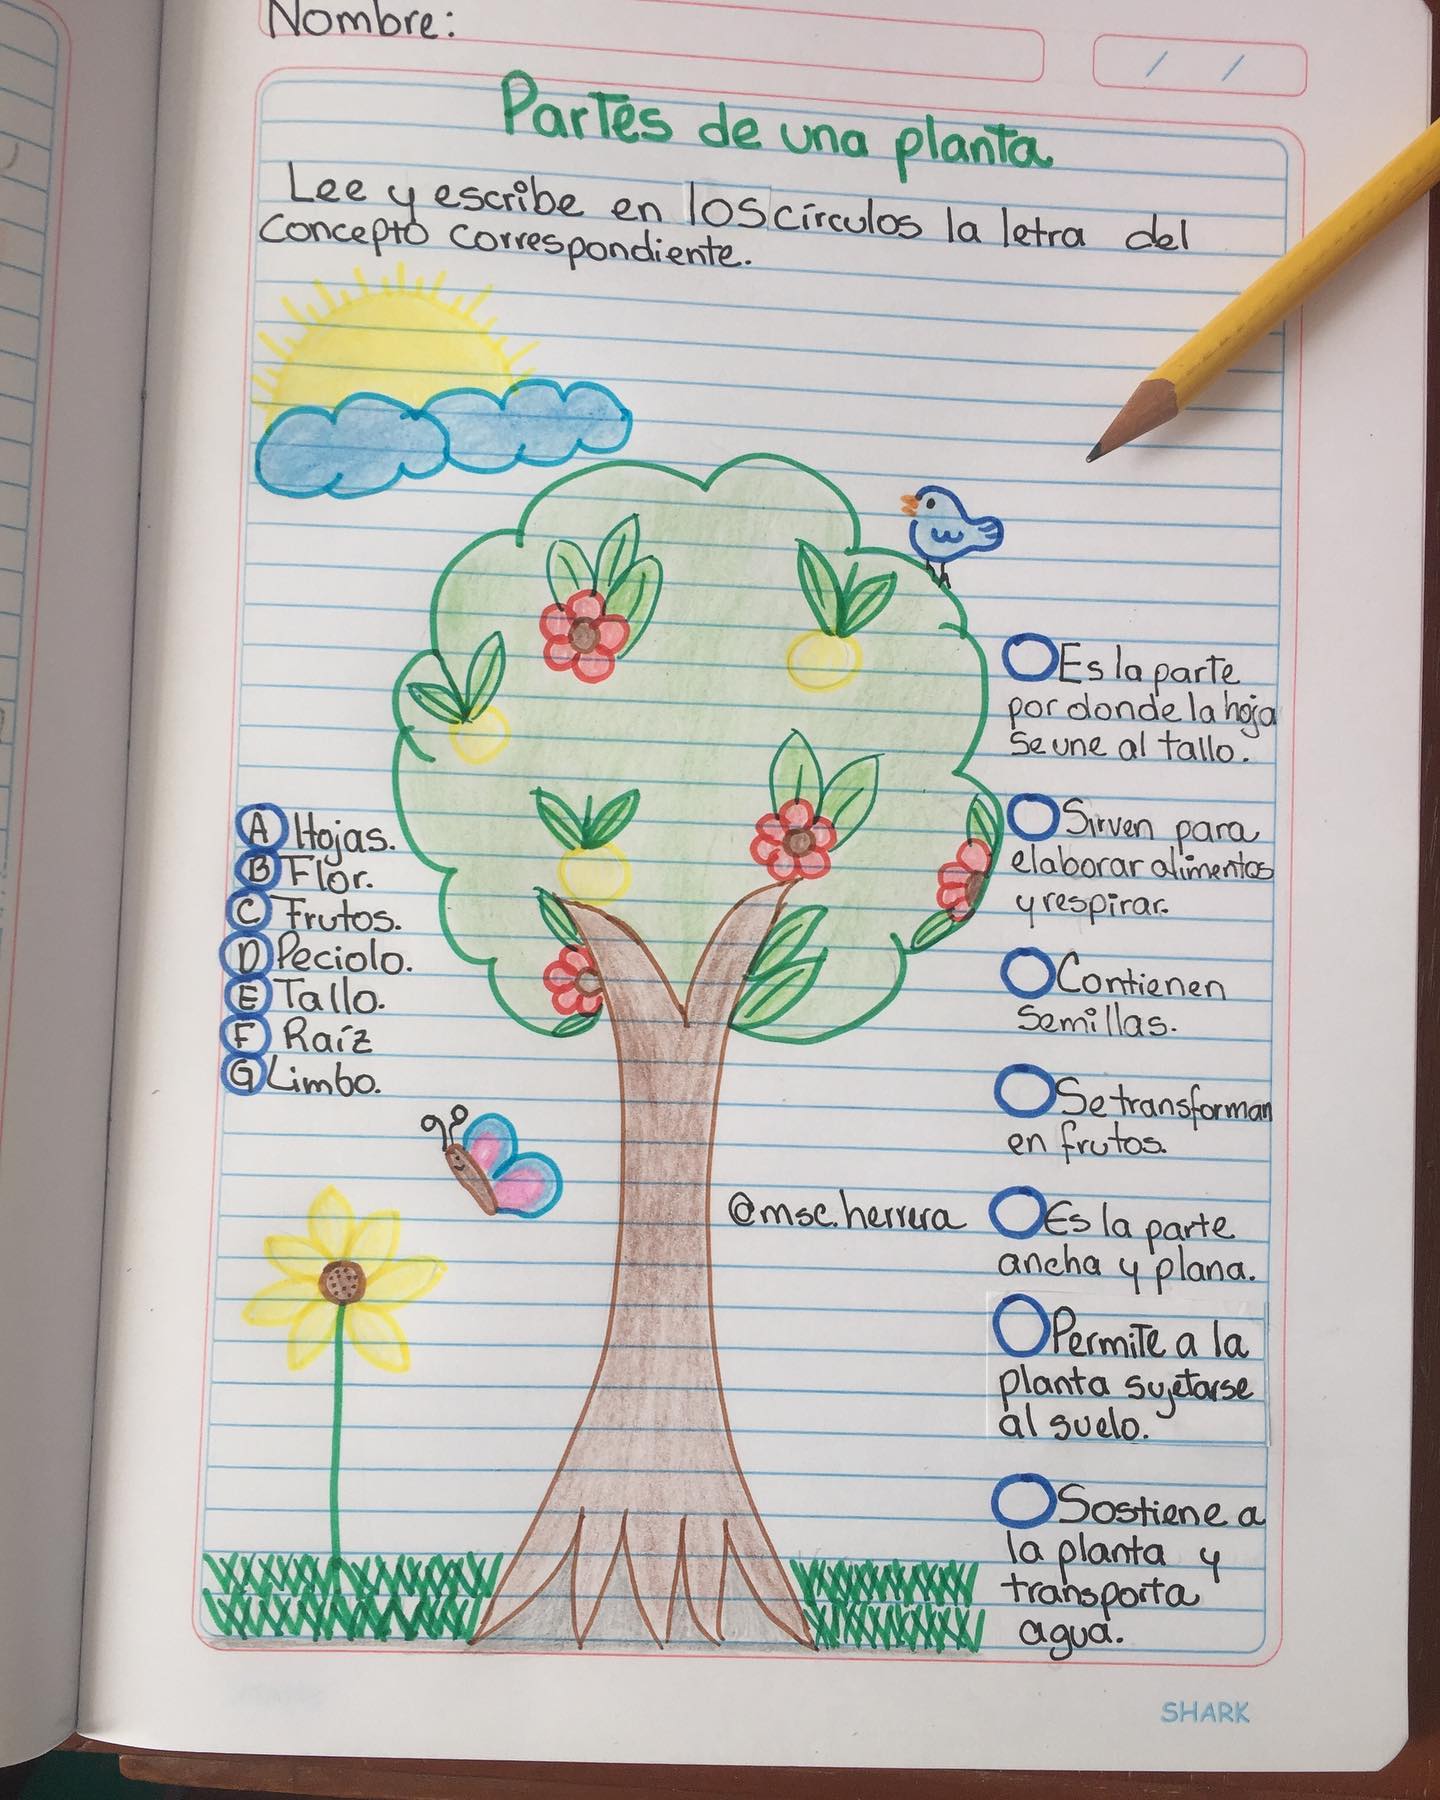 Nombre:
/ /
Partes de una planta
Lee y escribe en los círculos la letra del
concepto correspondiente.
A Hojas.
B Flor.
C Frutos.
D Peciolo.
E Tallo.
F Raíz
G Limbo.
@msc.herrera
Es la parte
por donde la hoja
se une al tallo.
Sirven para
elaborar alimentos
y respirar.
Contienen
semillas.
Se transforman
en frutos.
Es la parte
ancha y plana.
Permite a la
planta sujetarse
al suelo.
Sostiene a
la planta y
transporta
agua.
SHARK